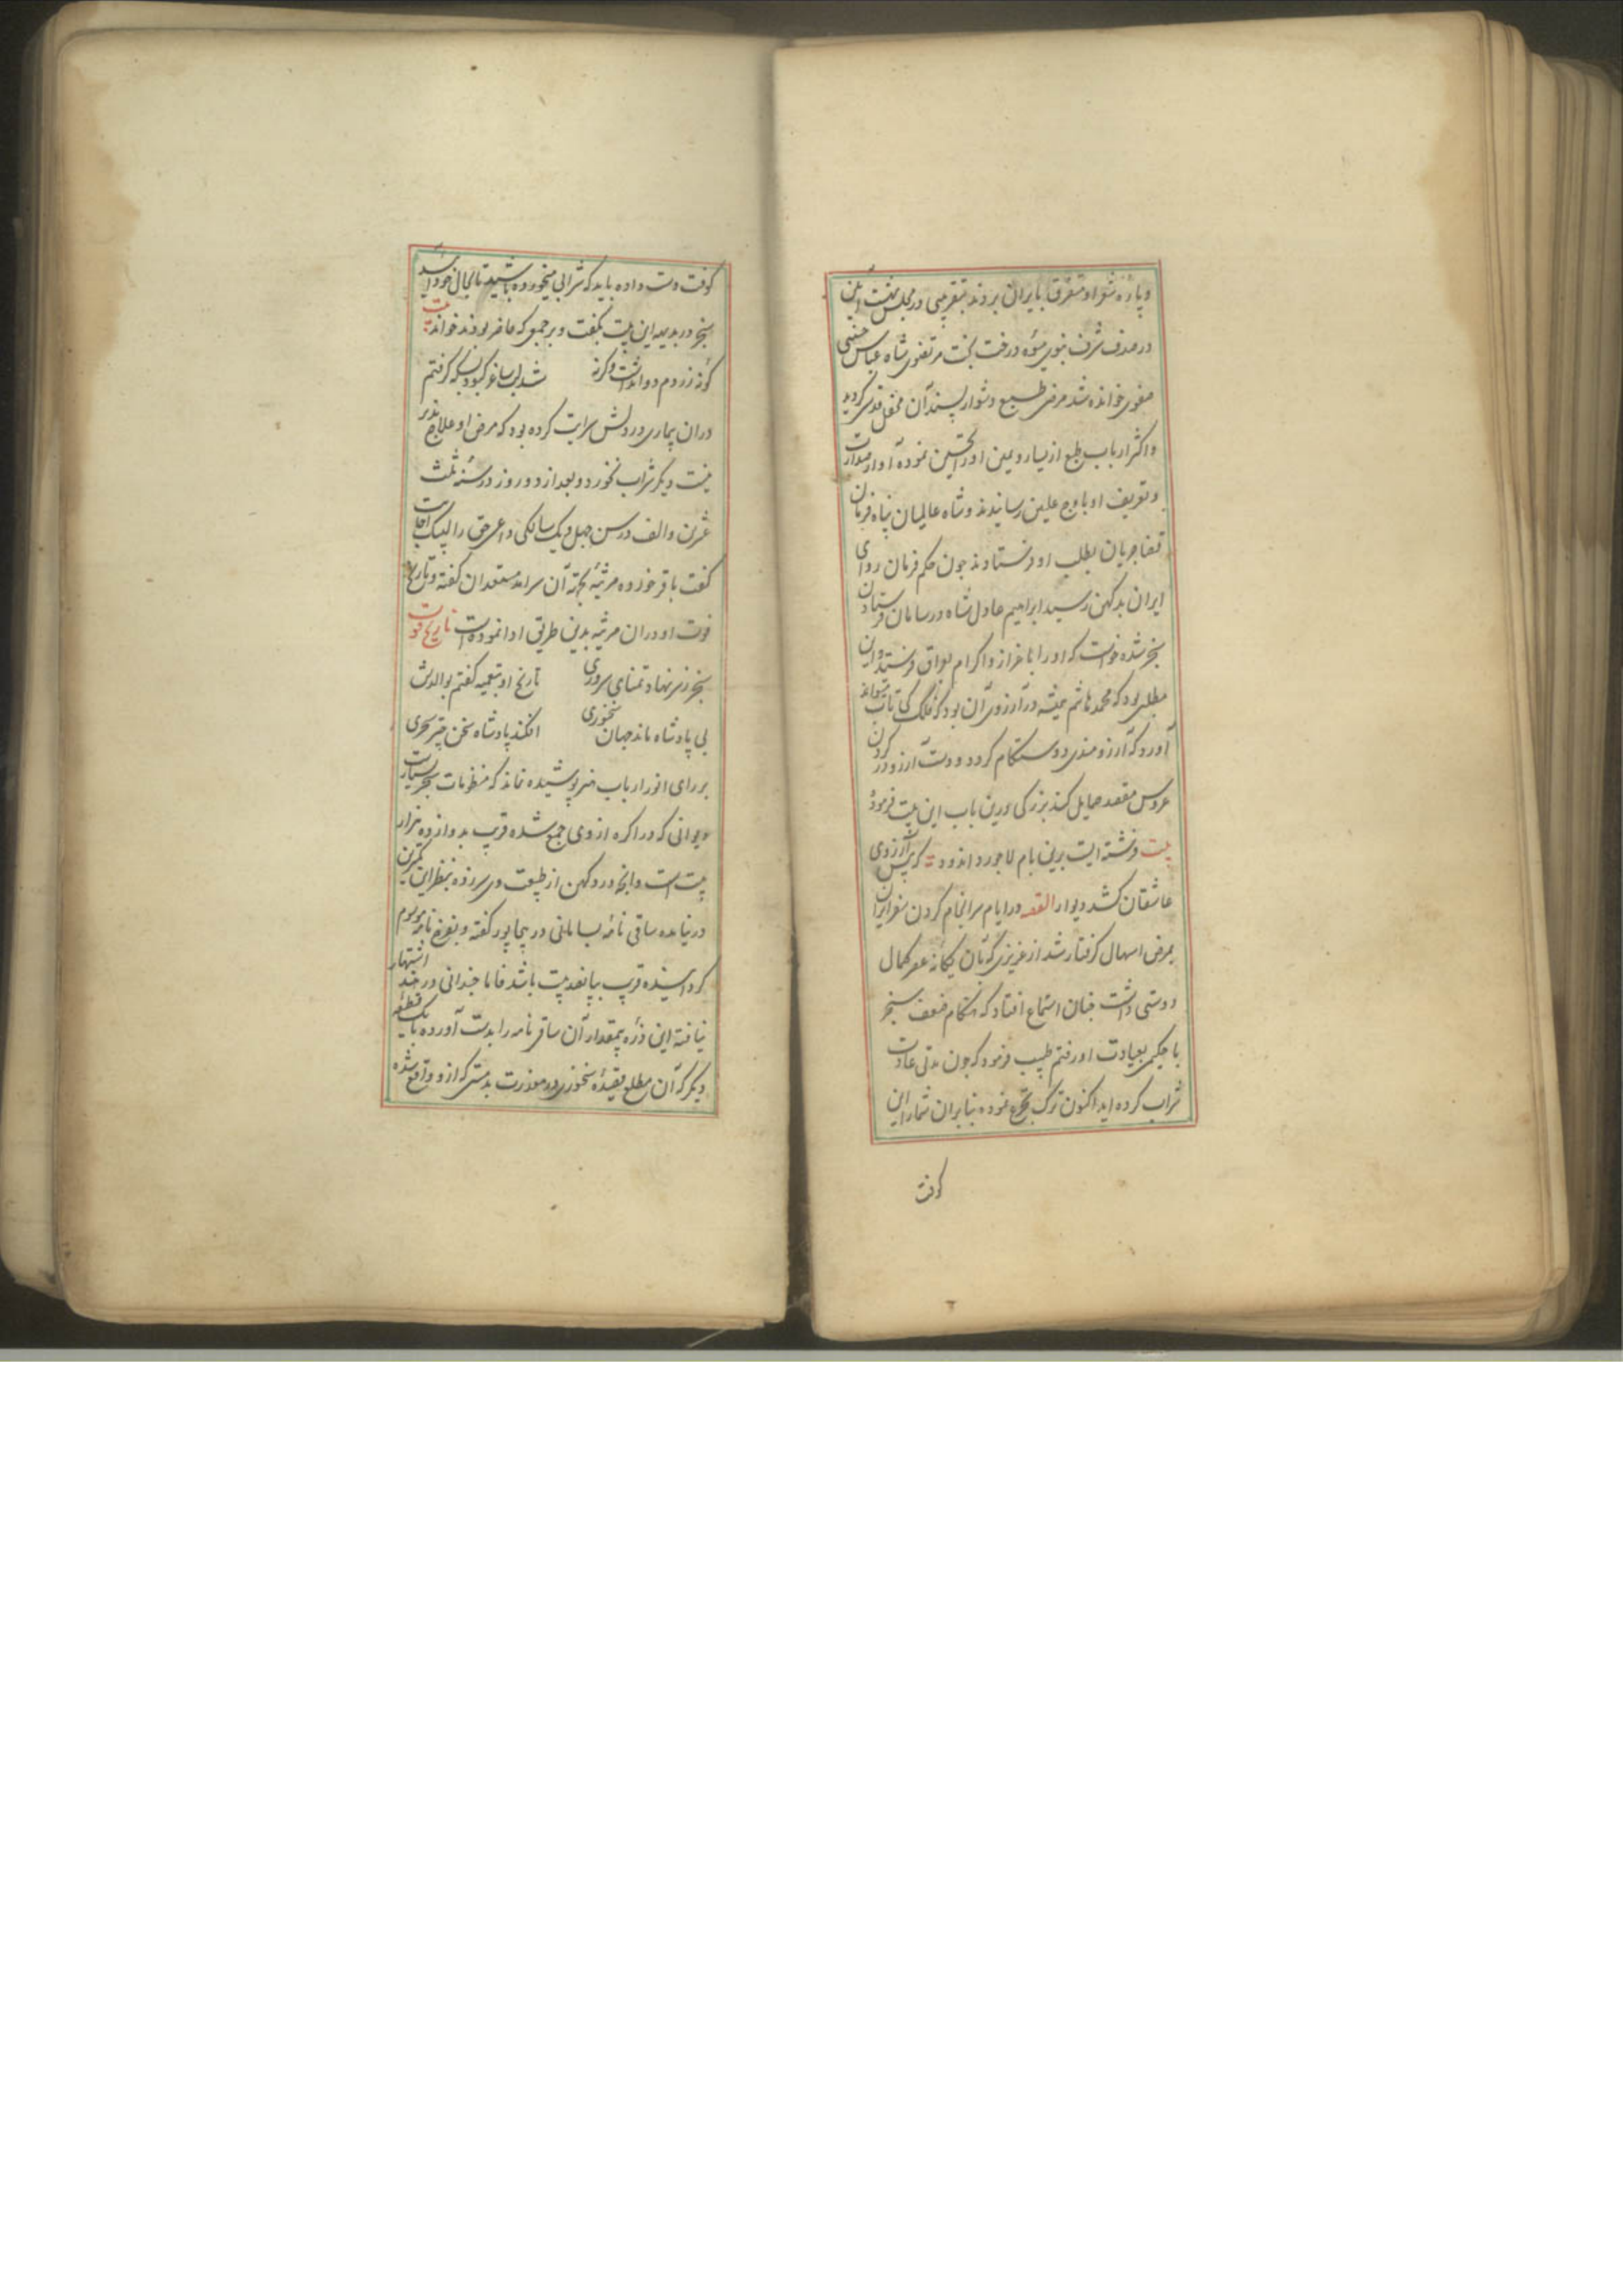 و پارهٔ شعر او متفرق بایران بردند بتقریبی در مجلس بهشت آیین
در صدف شرف نبوی میوه درخت بخت مرتضوی شاه عباس حسینی
صفوی خوانده شد مرضی طبیع دشوار پسند آن محفل قدسی کردید
و اکثر ارباب طبع از یسار و یمین او را تحسین نموده آواز
و تعریف او باوج علیین رسانیدند و شاه عالمیان پناه فرمان
قضا جریان بطلب او فرستادند چون حکم فرمان روای
ایران بدکهن رسید ابراهیم عادل شاه در سامان فرستادن
سنجر شده خواست که او را با عزاز و اکرام بعراق فرستد و این
مطلبی بود که محمد هاشم همیشه در آرزوی آن بود که فلک کی تاب تواند
آورد که آرزومندی دوستکام کردد و دست آرزو در کردن
عروس مقصد حمایل کند بزرکی درین باب این بیت فرموده
بیت فرشته ایست برین بام لاجورد اندود که پیش آرزوی
عاشقان کشد دیوار القصه در ایام سرانجام کردن سفر ایران
بمرض اسهال کرفتار شد از عزیزی که بآن یکانه عصر کمال
دوستی داشت چنان استماع افتاد که هنکام ضعف سنجر
با حکیمی بعیادت او رفتم طبیب فرمود که چون مدتی عادت
شراب کرده اید اکنون ترک تجرع نموده بنابران شما را این
کوفت
کوفت دست داده باید که شرابی میخورده باشید تا بحال خود آیید
سنجر در بدیهه این بیت بکفت و بر جمعی که حاضر بودند خواند بیت
کردم دو انداشت و کرنه شد لب ساغر کبود بسکه کرفتم
دران بیماری در دلش سرایت کرده بود که مرض او علاج پذیر
نیست دیکر شراب نخورد و بعد از دو روز در سنه ثلث
عشرین و الف در سن چهل و یک سالکی داعی حق را لبیک اجابت
کفت باقر خورده مرثیهٔ بجهة آن سرآمد مستعدان کفته و تاریخ
فوت او دران مرثیه بدین طریق ادا نموده است تاریخ فوت
سنجر ز سر نهاد تمنای سروری تاریخ او بتعمیه کفتم بوالدش
بی پادشاه ماند جهان سخنوری افکند پادشاه سخن چتر سنجری
بر رای انور ارباب هنر پوشیده نماند که منظومات سنجر بسیارست
دیوانی که در اکره از وی جمع شده قریب بدوازده هزار
بیت است و آنچه در دکهن از طبیعت وی سر زده بنظر این کمترین
در نیامده ساقی نامه بسامانی در بیجاپور کفته و بفرخ نامه موسوم
کردانیده قریب بپانصد بیت باشد فاما چندانی در هند اشتهار
نیافته این ذره بیمقدار آن ساقی نامه را بدست آورده با یک قطعه
دیکر که آن مطلع قصیدهٔ سخنوری در معذرت بدمستی که از و واقع شده